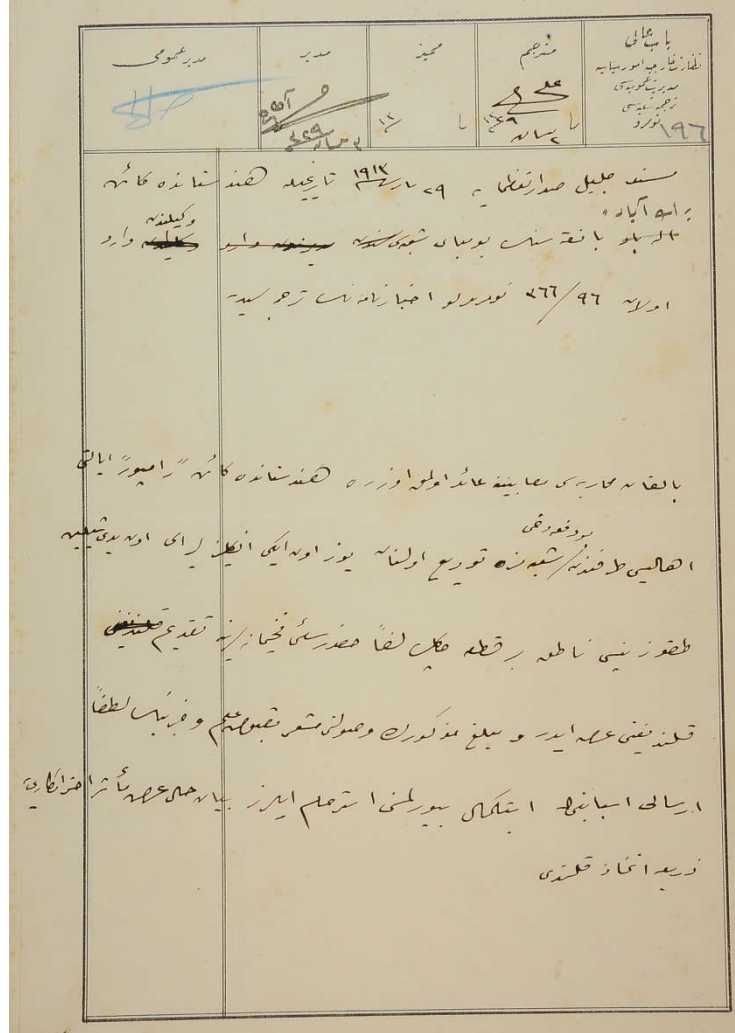 باب عالی
نظارت خارجیه امور سیاسیه
مدیریت عمومیه‌سی
ترجمه شعبه‌سی
نومرو ١٩٦
مترجم
ممیز
مدیر
مدیر عمومی
٢ نیسان ٣٢٩
٣ نیسان ٣٢٩
مسند جلیل صدارتعظمایه ٢٩ مارت ١٩١٣ تاریخیله هندستانده كائن
الله آباد
بانقه‌سنك بومبای شعبه‌سی وكیلندن وارد
اولان ٩٦/٣٦٦ نومرولو اخبارنامه‌نك ترجمه‌سیدر
بالقان محاربه‌سی مصابینه عائد اولمق اوزره هندستانده كائن "رامپور" ایالتی
اهالیسی طرفندن شعبه‌مزه تودیع اولنان یوز اون ایكی انكلیز لیرای اون یدی شیلین
طقوز پنسی ناطق بر قطعه چك لفاً حضور سامئ فخیمانه‌لرینه تقدیم
قلندیغنی عرض ایدر و مبلغ مذكورك وصولنی مشعر مقبوض علم و خبرینك لطفاً
ارسالی اسبابنك استكمال بیورلمسنی استرحام ایلرز بیان حال عرض تأثرات
ذریعه اتخاذ قلندی